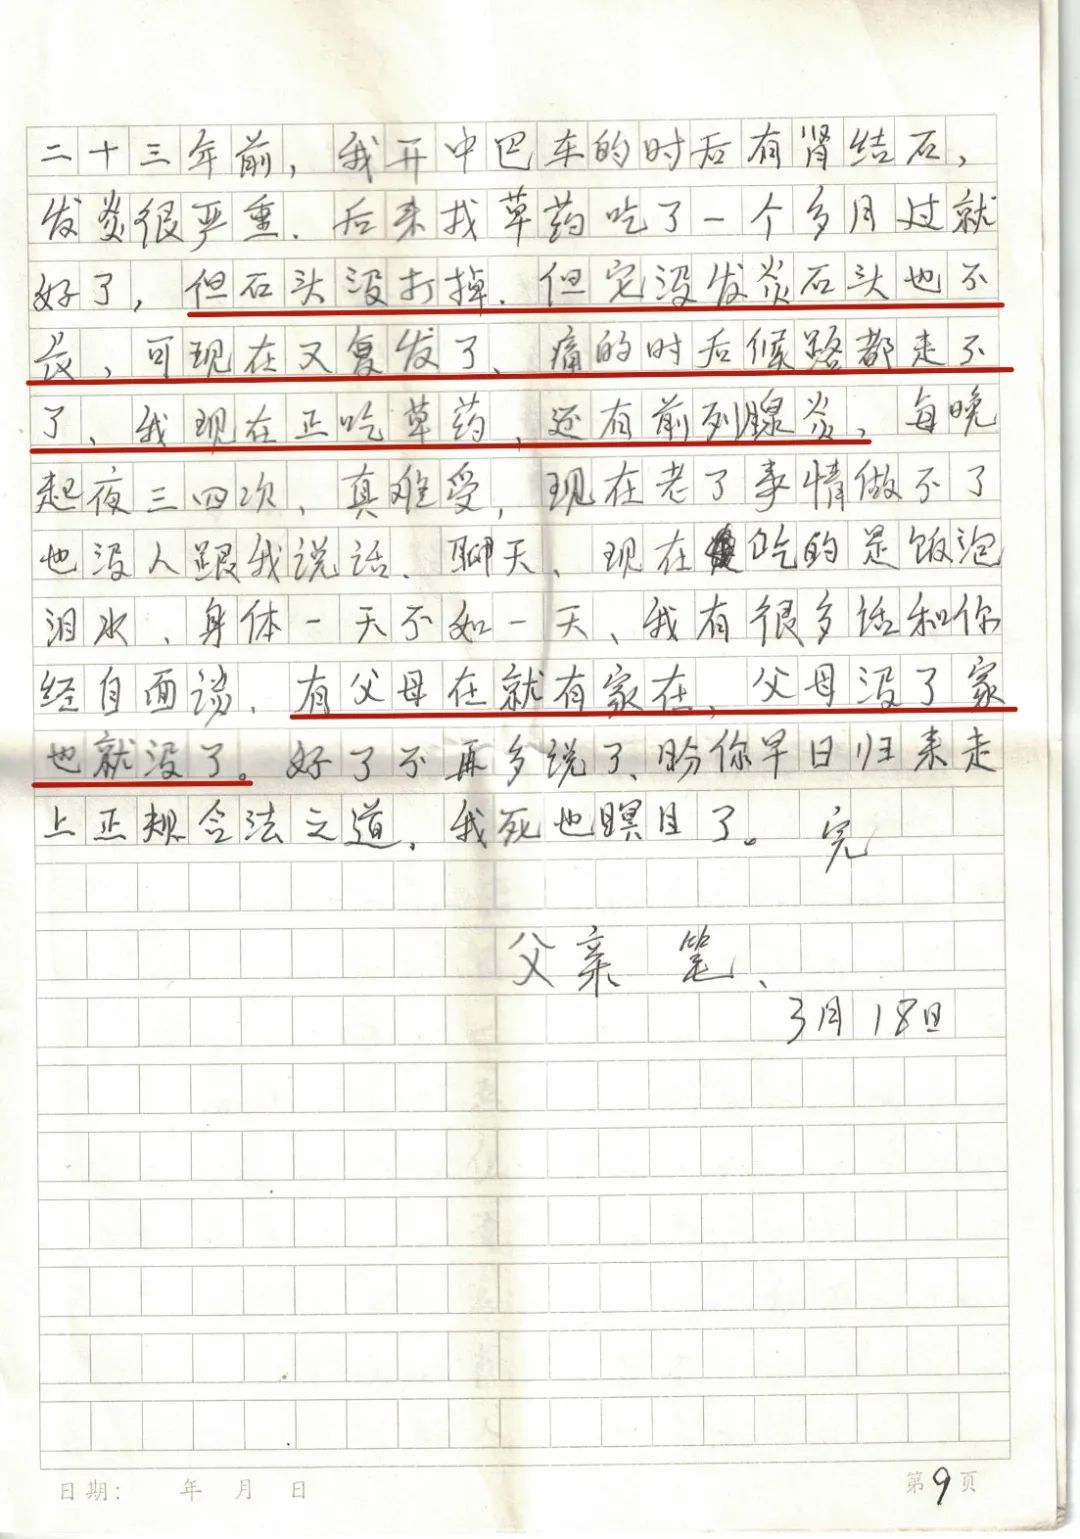 二十三年前，我开中巴车的时后有肾结石，
发炎很严重．后来找草药吃了一个多月过就
好了，但石头没打掉．但它没发炎石头也不
长，可现在又复发了、痛的时后候路都走不
了、我现在正吃草药，还有前列腺炎，每晚
起夜三四次、真难受，现在老了事情做不了
也没人跟我说话．聊天、现在吃的是饭泡
泪水、身体一天不如一天、我有很多话和你
经自面谈．有父母在就有家在、父母没了家
也就没了。好了不再多说了、盼你早日归来走
上正规合法之道，我死也瞑目了。完
父亲 笔、
3月18日
日期： 年 月 日
第9页